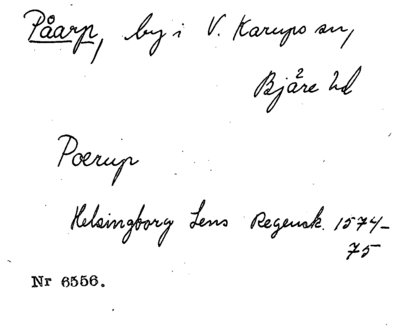 Påarp, by i V. Karups sn,
Bjäre hd
Poerup
Helsingborg Lens Regensk. 1574-
75
Nr 6556.